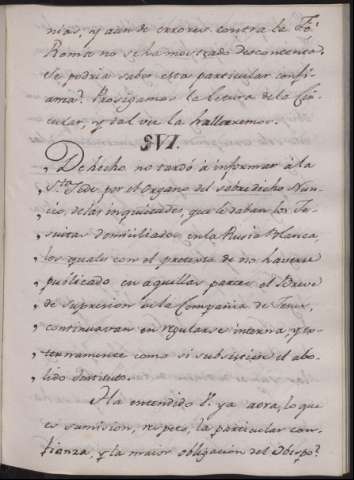 nias, y aun de errores contra la Fé.
Roma no se ha mostrado descontenta.
Se podria saber esta particular confi-
anza? Prosigamos la letura de la Cir-
cular, y tal vez la hallaremos.
§VI.
De hecho no tardó à informar à la
„ Sta Sede por el Organo del sobredicho Nun-
„ cio, de las inquietudes, que le daban los Je-
„ suitas domiciliados en la Rusia Blanca,
„ los quales con el pretexto de no haverse
„ publicado en aquellas partes el Breve
„ de supresion de la Compañia de Jesus,
„ continuavan en regularse interna, y es-
„ ternamente como si subsistiese el abo-
„ lido Instituto.
Ha entendido V. ya aora, lo que
es sumision, respeto, la particular con-
fianza, y la maior obligacion del Obispo?